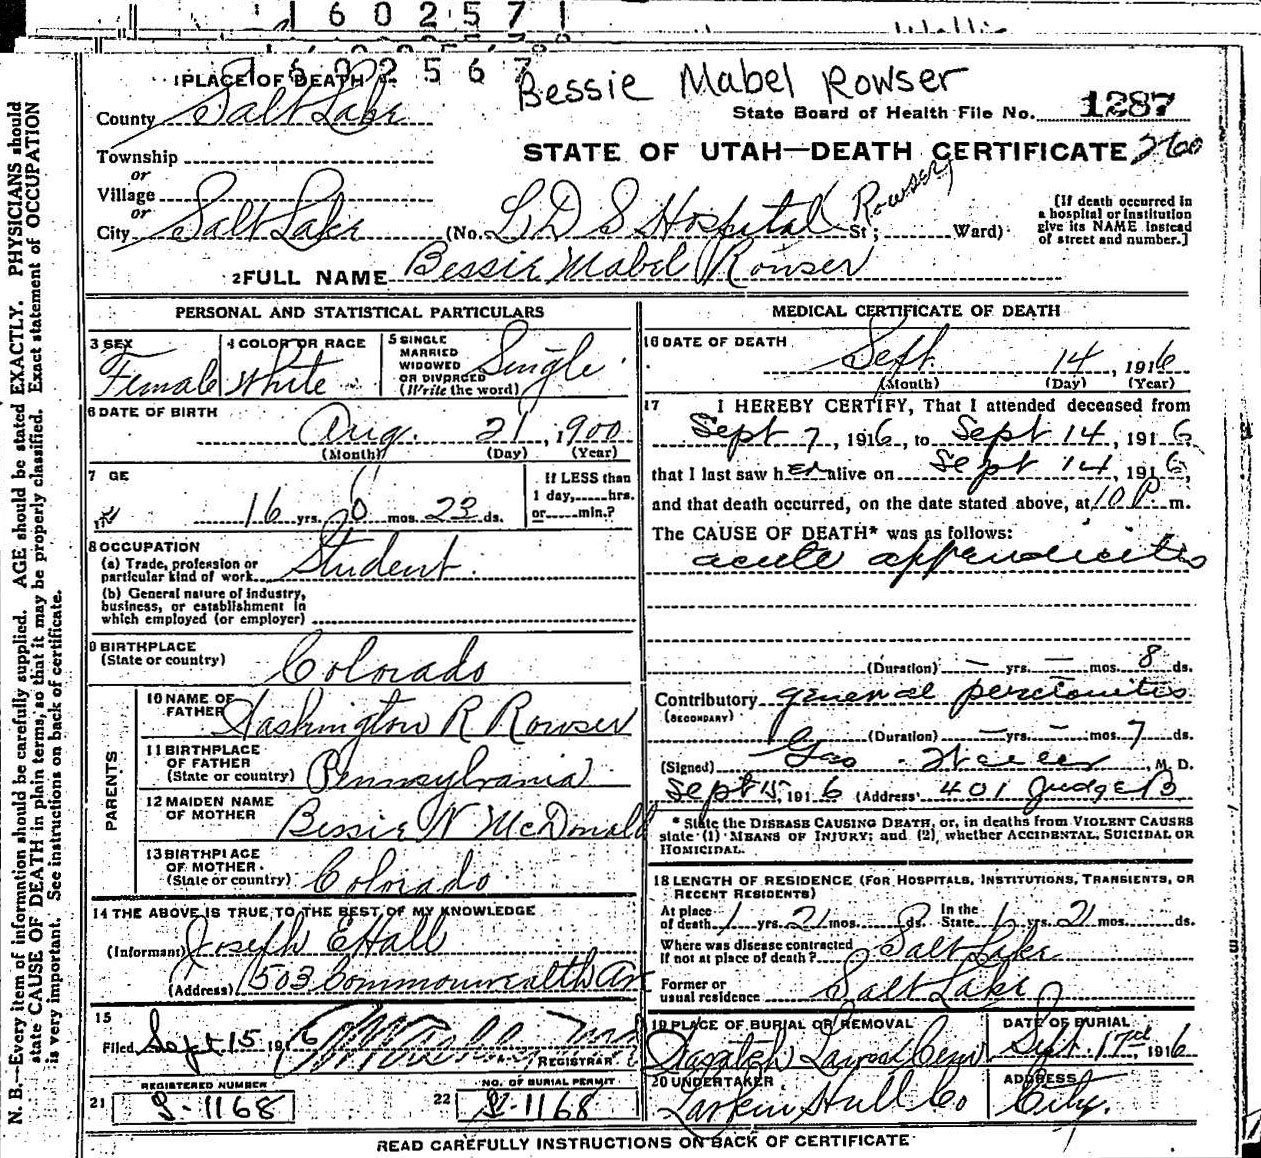 1 6 0 2 5 7
1 6 0 2 5 6 7
1 PLACE OF DEATH
Bessie Mabel Rowser
County Salt Lake
State Board of Health File No. 1287
Township
STATE OF UTAH—DEATH CERTIFICATE 260
or
Village
or
City Salt Lake (No. L D S Hospital St; Ward)
Rowser
[If death occurred in a hospital or institution give its NAME instead of street and number.]
2 FULL NAME Bessie Mabel Rowser
PERSONAL AND STATISTICAL PARTICULARS
3 SEX Female
4 COLOR OR RACE White
5 SINGLE MARRIED WIDOWED OR DIVORCED (Write the word) Single
6 DATE OF BIRTH
Aug. 21, 1900
(Month) (Day) (Year)
7 GE
16 yrs. 0 mos. 23 ds.
If LESS than 1 day, hrs. or min.?
8 OCCUPATION
(a) Trade, profession or particular kind of work Student.
(b) General nature of industry, business, or establishment in which employed (or employer)
9 BIRTHPLACE
(State or country) Colorado
PARENTS
10 NAME OF FATHER Washington R Rowser
11 BIRTHPLACE OF FATHER (State or country) Pennsylvania
12 MAIDEN NAME OF MOTHER Bessie N McDonald
13 BIRTHPLACE OF MOTHER (State or country) Colorado
14 THE ABOVE IS TRUE TO THE BEST OF MY KNOWLEDGE
(Informant) Joseph E Hall
(Address) 1503 Commonwealth Av
15
Filed Sept 15 1916
REGISTRAR
REGISTERED NUMBER
21 S-1168
NO. OF BURIAL PERMIT
22 S-1168
MEDICAL CERTIFICATE OF DEATH
16 DATE OF DEATH
Sept. 14, 1916
(Month) (Day) (Year)
17 I HEREBY CERTIFY, That I attended deceased from
Sept 7, 1916, to Sept 14, 1916,
that I last saw her alive on Sept 14, 1916,
and that death occurred, on the date stated above, at 10 P m.
The CAUSE OF DEATH* was as follows:
acute appendicitis
(Duration) — yrs. — mos. 8 ds.
Contributory general peretonitis
(SECONDARY)
(Duration) — yrs. — mos. 7 ds.
(Signed) Geo. M. D.
Sept 15, 1916 (Address) 401 Judge B
* State the DISEASE CAUSING DEATH, or, in deaths from VIOLENT CAUSES state (1) MEANS OF INJURY; and (2) whether ACCIDENTAL, SUICIDAL OR HOMICIDAL.
18 LENGTH OF RESIDENCE (FOR HOSPITALS, INSTITUTIONS, TRANSIENTS, OR RECENT RESIDENTS)
At place of death 1 yrs. 21 mos. ds. In the State 1 yrs. 21 mos. ds.
Where was disease contracted if not at place of death? Salt Lake
Former or usual residence Salt Lake
19 PLACE OF BURIAL OR REMOVAL Wasatch Lawn Cem
DATE OF BURIAL Sept. 17, 1916
20 UNDERTAKER Larkin Hull Co
ADDRESS City.
READ CAREFULLY INSTRUCTIONS ON BACK OF CERTIFICATE
N. B.—Every item of information should be carefully supplied. AGE should be stated EXACTLY. PHYSICIANS should
state CAUSE OF DEATH in plain terms, so that it may be properly classified. Exact statement of OCCUPATION
is very important. See instructions on back of certificate.